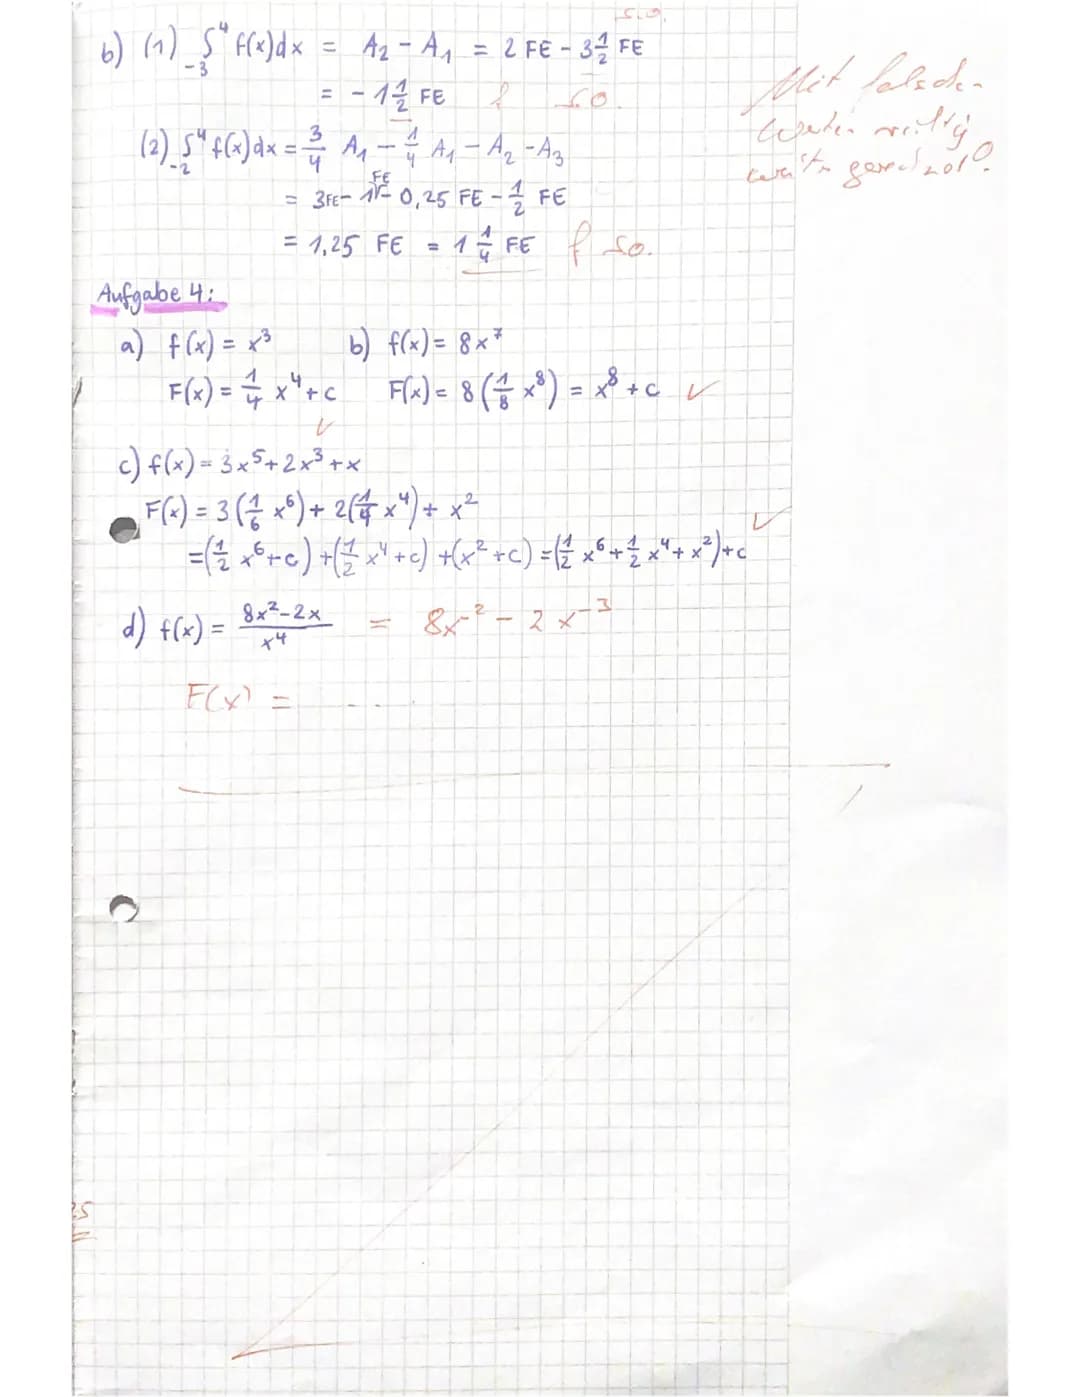 s.o.
b) (1) ∫₋₃⁴ f(x)dx = A₂ - A₁ = 2 FE - 3½ FE
= - 1½ FE f s.o.
Mit falschen
Werten richtig
weiter gerechnet!
(2) ∫₋₂⁴ f(x)dx = 3/4 A₁ - 1/4 A₁ - A₂ - A₃
= 3FE - 1 FE - 0,25 FE - ½ FE
= 1,25 FE = 1¼ FE f s.o.
Aufgabe 4:
a) f(x) = x³ b) f(x) = 8x⁷
F(x) = ¼ x⁴ + c F(x) = 8 (⅛ x⁸) = x⁸ + c ✓
✓
c) f(x) = 3x⁵ + 2x³ + x
F(x) = 3 (1/6 x⁶) + 2(¼ x⁴) + x²
= (½ x⁶ + c) + (½ x⁴ + c) + (x² + c) = (½ x⁶ + ½ x⁴ + x²) + c ✓
d) f(x) = (8x² - 2x)/x⁴ = 8x⁻² - 2x⁻³
F(x) = ...